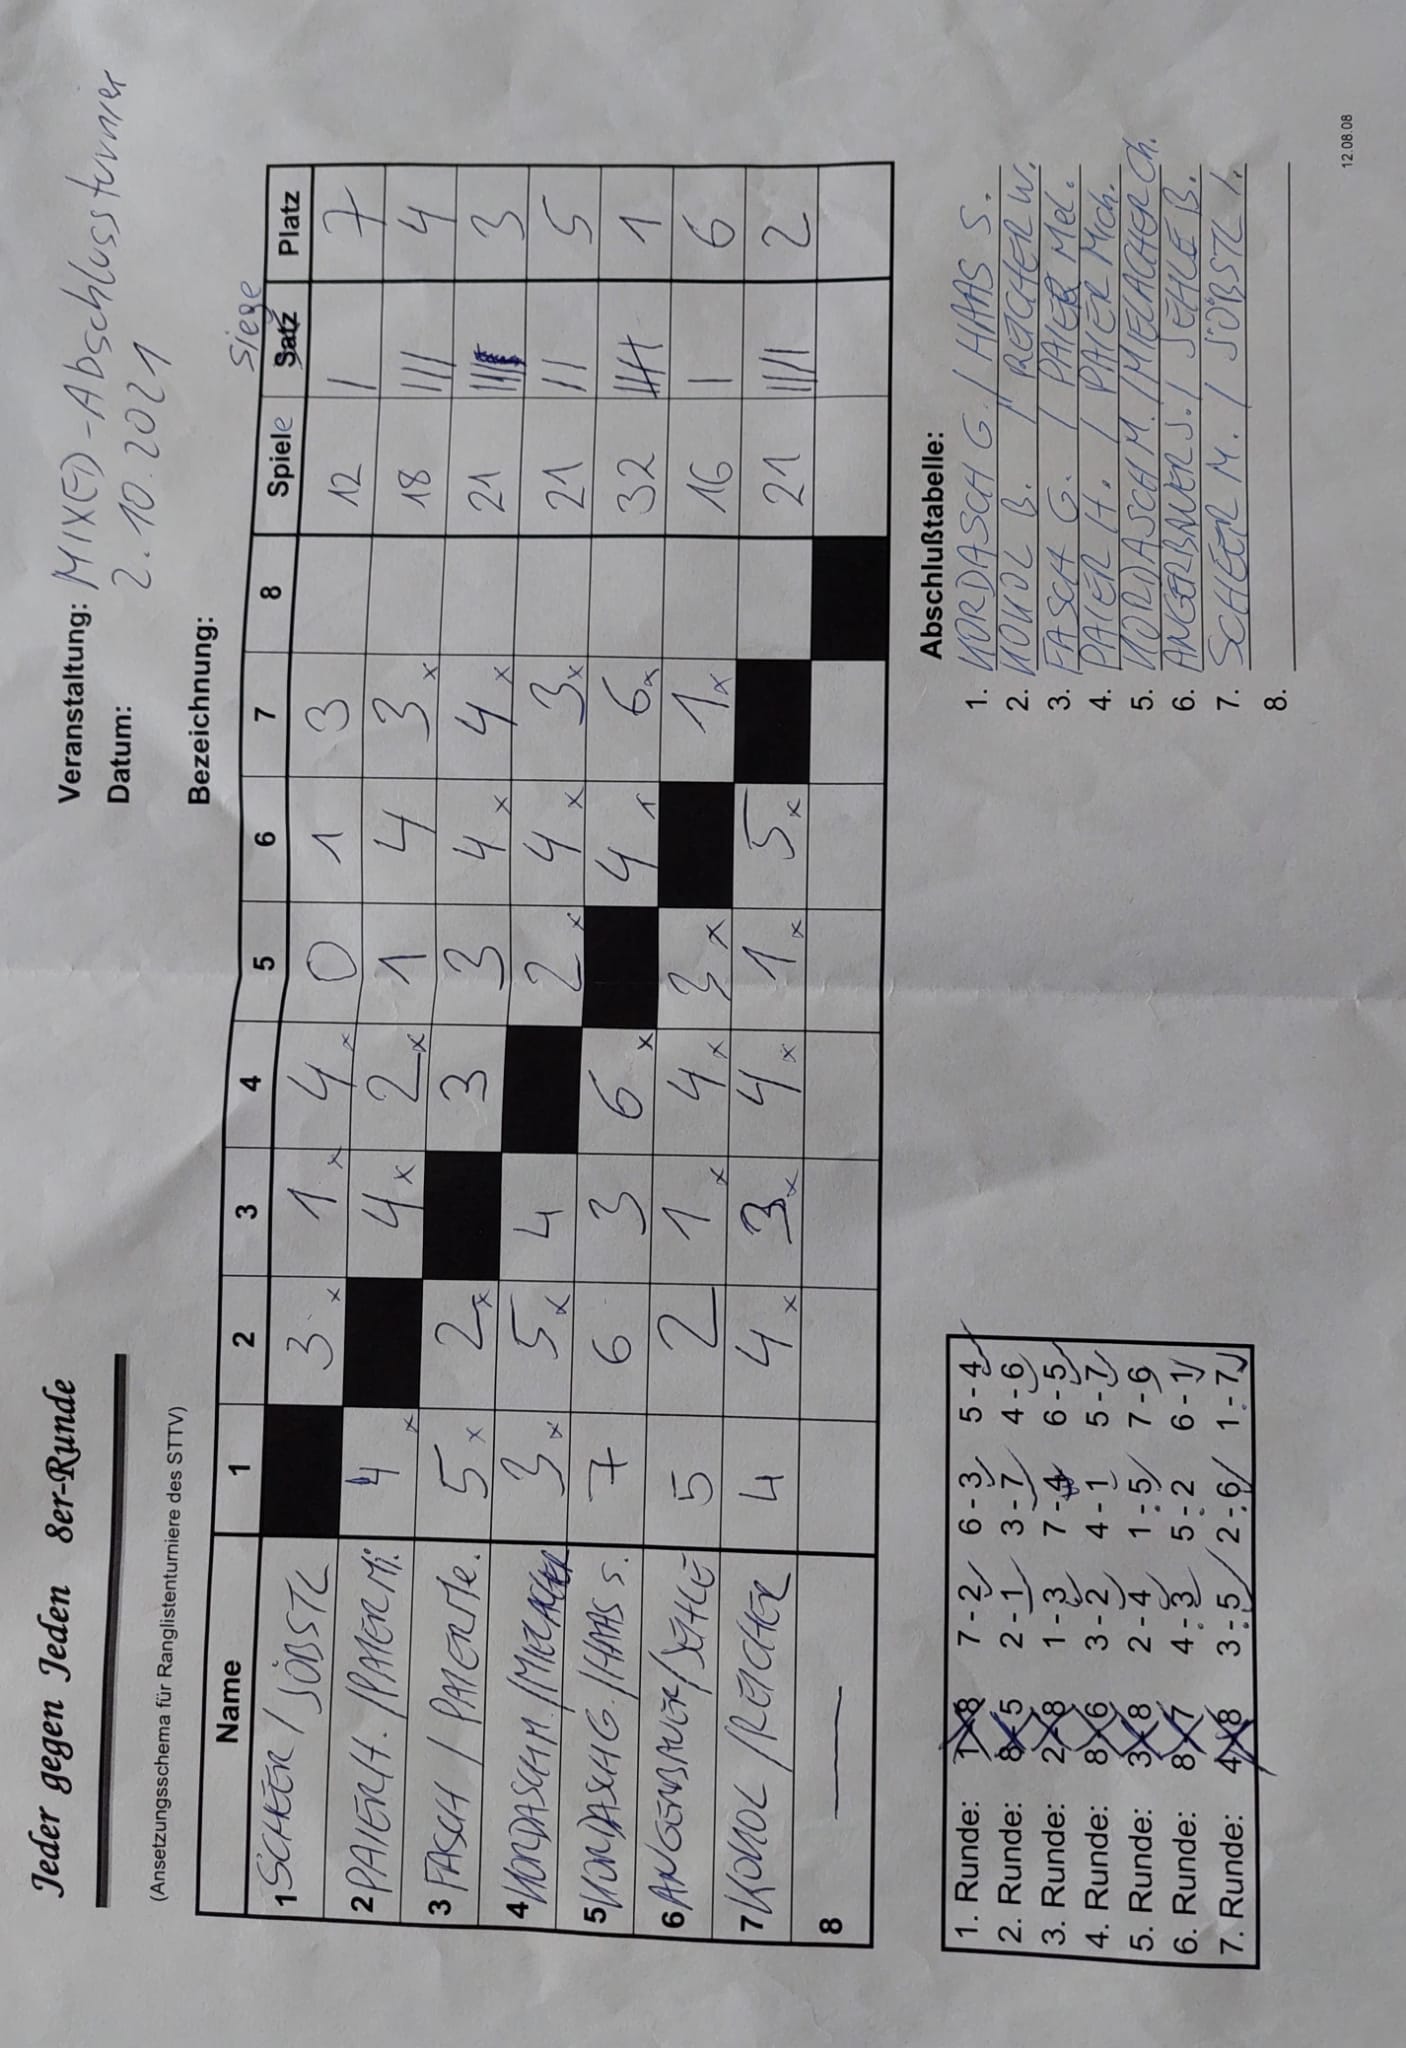 Jeder gegen Jeden 8er-Runde
Veranstaltung: MIX(E)-Abschlussturnier
Datum: 2.10.2021
(Ansetzungsschema für Ranglistenturniere des STTV)
Bezeichnung:
Siege
Name 1 2 3 4 5 6 7 8 Spiele Satz Platz
1 SCHEER / JÖBSTL 3x 1x 4x 0 1 3 12 | 7
2 PAIER H. / PAIER Mi. 4x 4x 2x 1 4 3x 18 ||| 4
3 FASCH / PAIER Me. 5x 2x 3 3 4x 4x 21 |||| 3
4 KORDASCH M. / MIELACHER 3x 5x 4 2x 4x 3x 21 || 5
5 KORDASCH G. / HAAS S. 7 6 3 6x 4x 6x 32 |||| 1
6 ANGERBAUER / JEHLE 5 2 1x 4x 3x 1x 16 | 6
7 KOKOL / REICHER 4 4x 3x 4x 1x 5x 21 |||| 2
8
1. Runde: 1-8 7-2 6-3 5-4
2. Runde: 8-5 2-1 3-7 4-6
3. Runde: 2-8 1-3 7-4 6-5
4. Runde: 8-6 3-2 4-1 5-7
5. Runde: 3-8 2-4 1-5 7-6
6. Runde: 8-7 4-3 5-2 6-1
7. Runde: 4-8 3-5 2-6 1-7
Abschlußtabelle:
1. KORDASCH G. / HAAS S.
2. KOKOL B. / REICHER W.
3. FASCH G. / PAIER Mel.
4. PAIER H. / PAIER Mich.
5. KORDASCH M. / MIELACHER Ch.
6. ANGERBAUER S. / JEHLE B.
7. SCHEER M. / JÖBSTL I.
8.
12.08.08